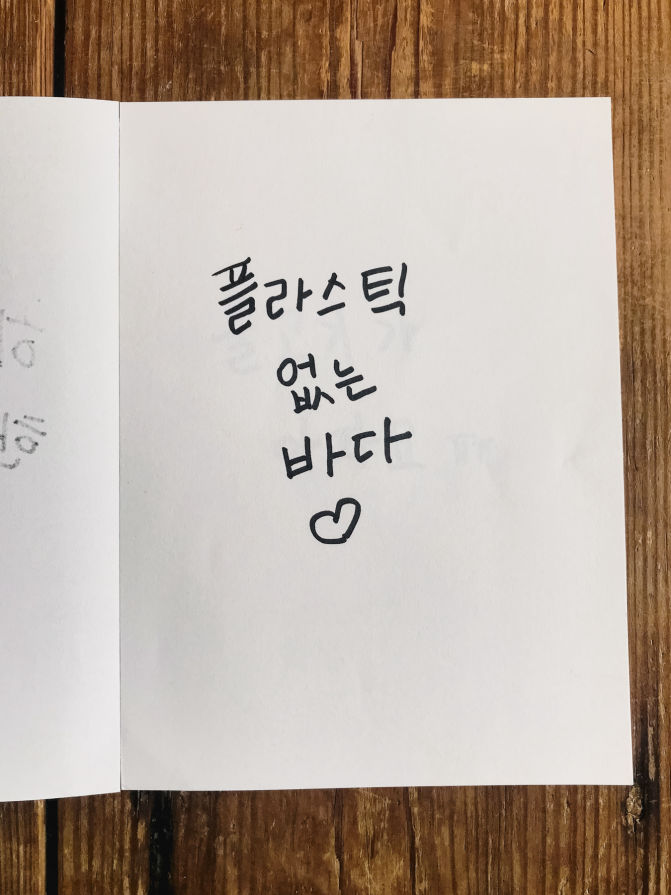 플라스틱
없는
바다
♡